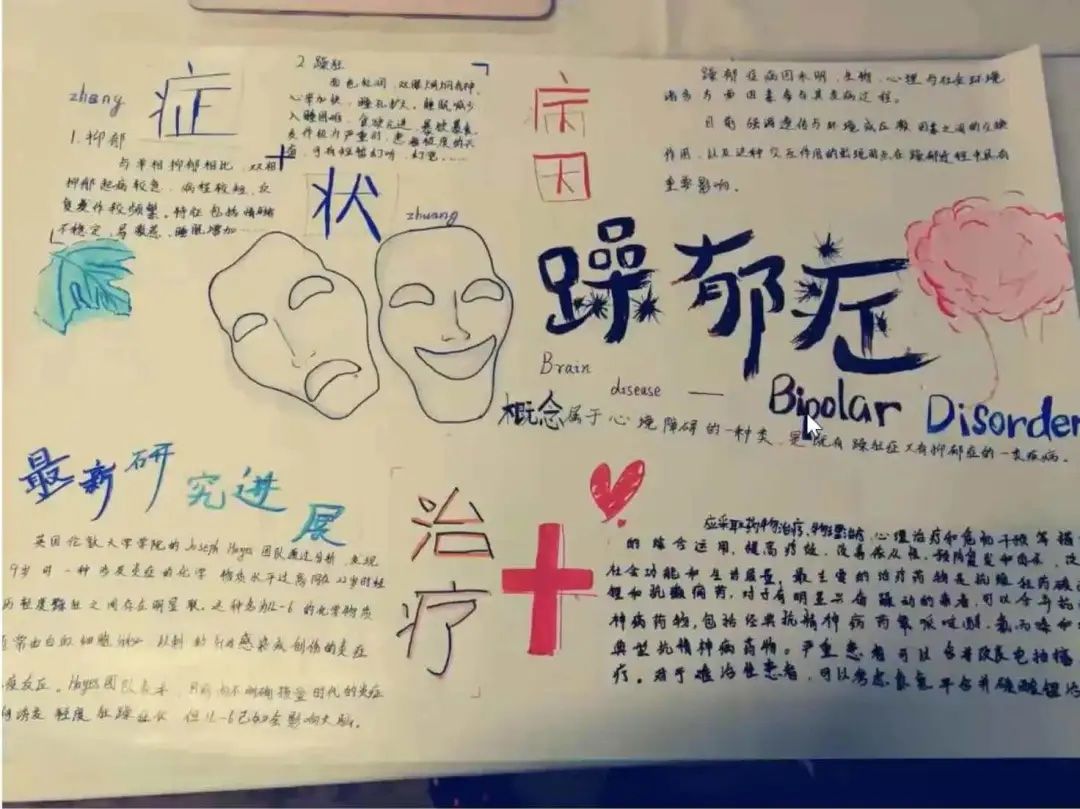 zheng 症
1.抑郁
与单相抑郁相比,双相
抑郁起病较急,病程较短,反
复发作较频繁。特征包括情绪
不稳定,易激惹,睡眠增加……
2 躁狂
面色红润,双眼炯炯有神,
心率加快,瞳孔扩大,睡眠减少
入睡困难,食欲亢进,暴饮暴食,
发作极为严重时,患者极度的兴
可有短暂幻听,幻觉……
状
zhuang
病
因
躁郁症病因未明,生物、心理与社会环境
诸多方面因素参与其发病过程。
目前强调遗传与环境或应激因素之间的交互
作用,以及这种交互作用的出现时点在躁郁症过程中具有
重要影响。
躁郁症
Brain
disease —
Bipolar Disorder
概念属于心境障碍的一种类,是既有躁狂症又有抑郁症的一类疾病。
最新研究进展
英国伦敦大学学院的Joseph Hayes团队通过分析,发现
9岁时一种涉及炎症的化学物质水平过高同在22岁时经
历轻度躁狂之间存在明显联。这种名为IL-6的化学物质
常由白血细胞 以刺 感染或创伤的炎症
疫反应。Hayes团队表示,目前尚不明确孩童时代的炎症
何诱发轻度狂躁症状,但IL-6已知会影响大脑。
治
疗
应采取药物治疗,物理治疗,心理治疗和危机干预等措
的综合运用,提高疗效、改善依从性、预防复发和自杀,改
社会功能和生活质量。最主要的治疗药物是抗躁狂药碳酸
锂和抗癫痫药,对于有明显兴奋躁动的患者,可以合并抗
神病药物,包括经典抗精神病药氟哌啶醇、氯丙嗪和
典型抗精神病药物。严重患者可以合并改良电抽搐
疗。对于难治性患者,可以考虑氯氮平合并碳酸锂治